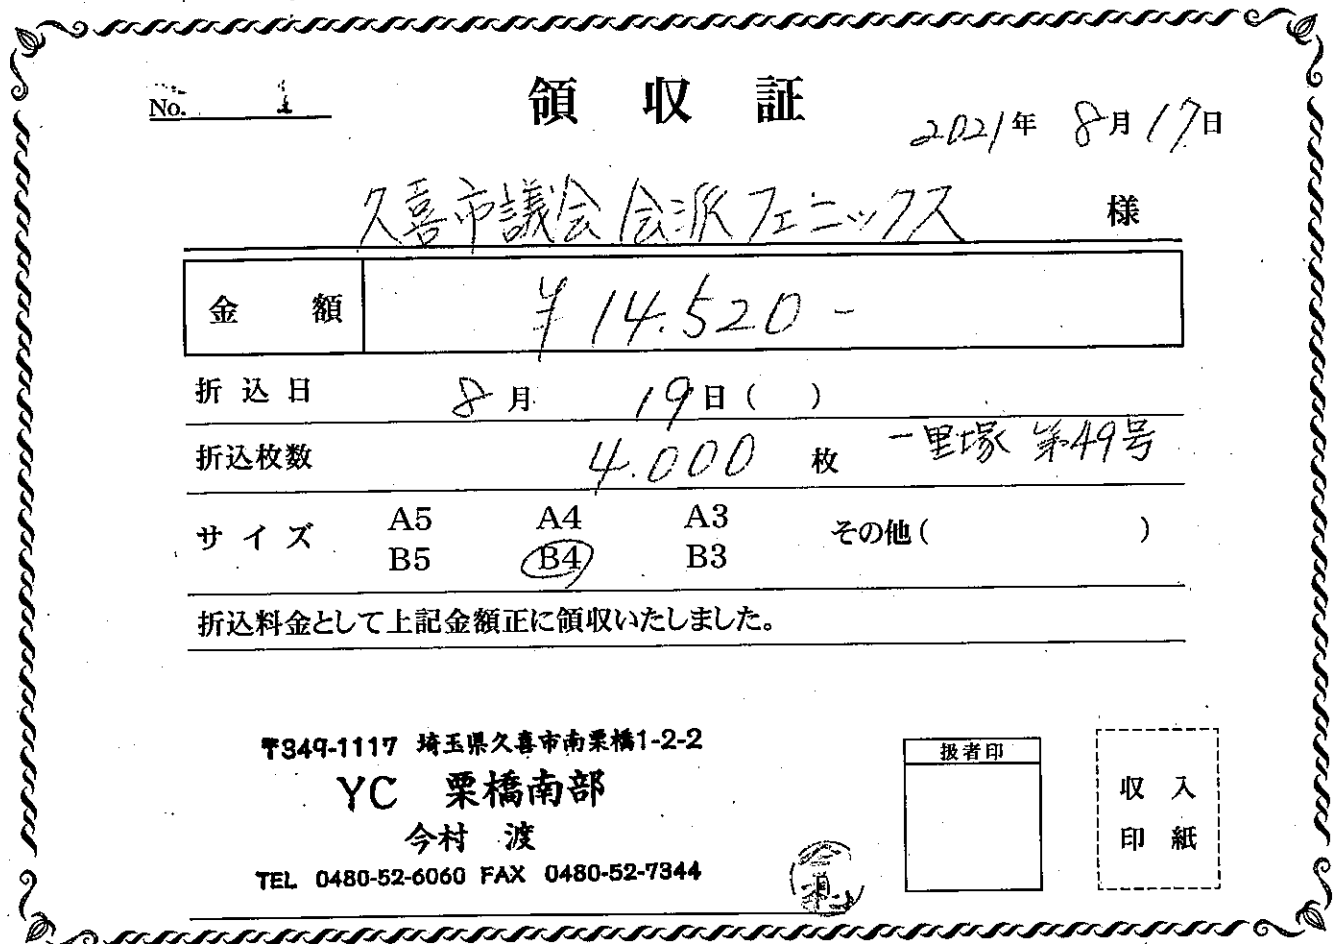 No. 1
領収証
2021年 8月17日
久喜市議会 会派フェニックス 様
金額 ¥14.520-
折込日 8月 19日( )
折込枚数 4.000 枚 一里塚 第49号
サイズ A5 A4 A3 その他( )
B5 B4 B3
折込料金として上記金額正に領収いたしました。
〒349-1117 埼玉県久喜市南栗橋1-2-2
YC 栗橋南部
今村 渡
TEL 0480-52-6060 FAX 0480-52-7344
扱者印
収入
印紙